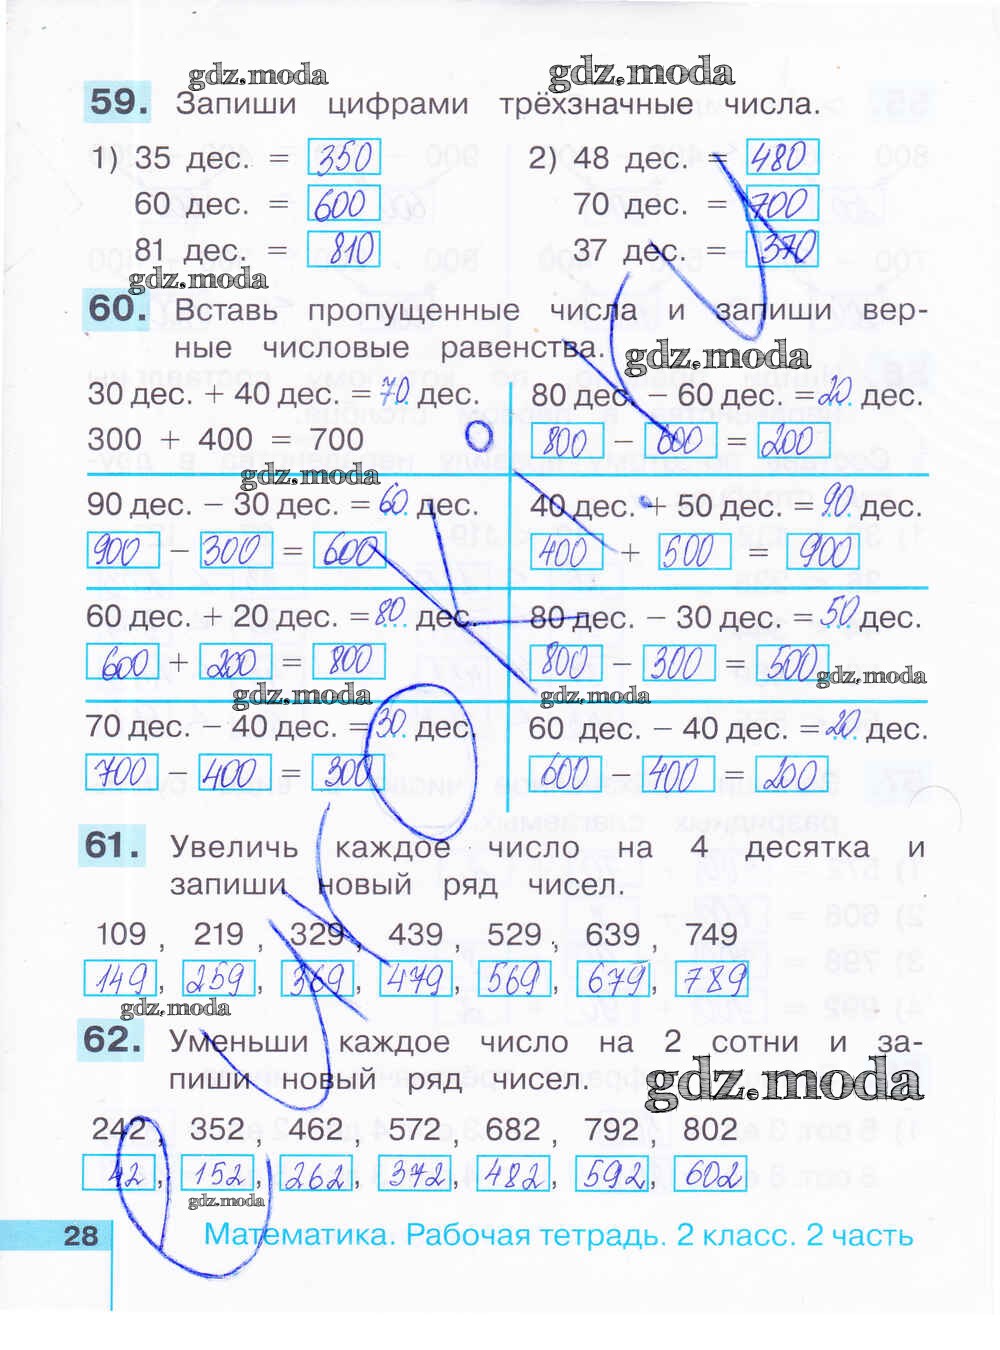 gdz.moda gdz.moda
59. Запиши цифрами трёхзначные числа.
1) 35 дес. = 350
60 дес. = 600
81 дес. = 810
2) 48 дес. = 480
70 дес. = 700
37 дес. = 370
gdz.moda
60. Вставь пропущенные числа и запиши вер-
ные числовые равенства.
gdz.moda
30 дес. + 40 дес. = 70 дес.
300 + 400 = 700
80 дес. − 60 дес. = 20 дес.
800 − 600 = 200
gdz.moda
90 дес. − 30 дес. = 60 дес.
900 − 300 = 600
40 дес. + 50 дес. = 90 дес.
400 + 500 = 900
60 дес. + 20 дес. = 80 дес.
600 + 200 = 800
80 дес. − 30 дес. = 50 дес.
800 − 300 = 500
gdz.moda gdz.moda gdz.moda
70 дес. − 40 дес. = 30 дес.
700 − 400 = 300
60 дес. − 40 дес. = 20 дес.
600 − 400 = 200
61. Увеличь каждое число на 4 десятка и
запиши новый ряд чисел.
109, 219, 329, 439, 529, 639, 749
149, 259, 369, 479, 569, 679, 789
gdz.moda
62. Уменьши каждое число на 2 сотни и за-
пиши новый ряд чисел.
gdz.moda
242, 352, 462, 572, 682, 792, 802
42, 152, 262, 372, 482, 592, 602
gdz.moda
28 Математика. Рабочая тетрадь. 2 класс. 2 часть